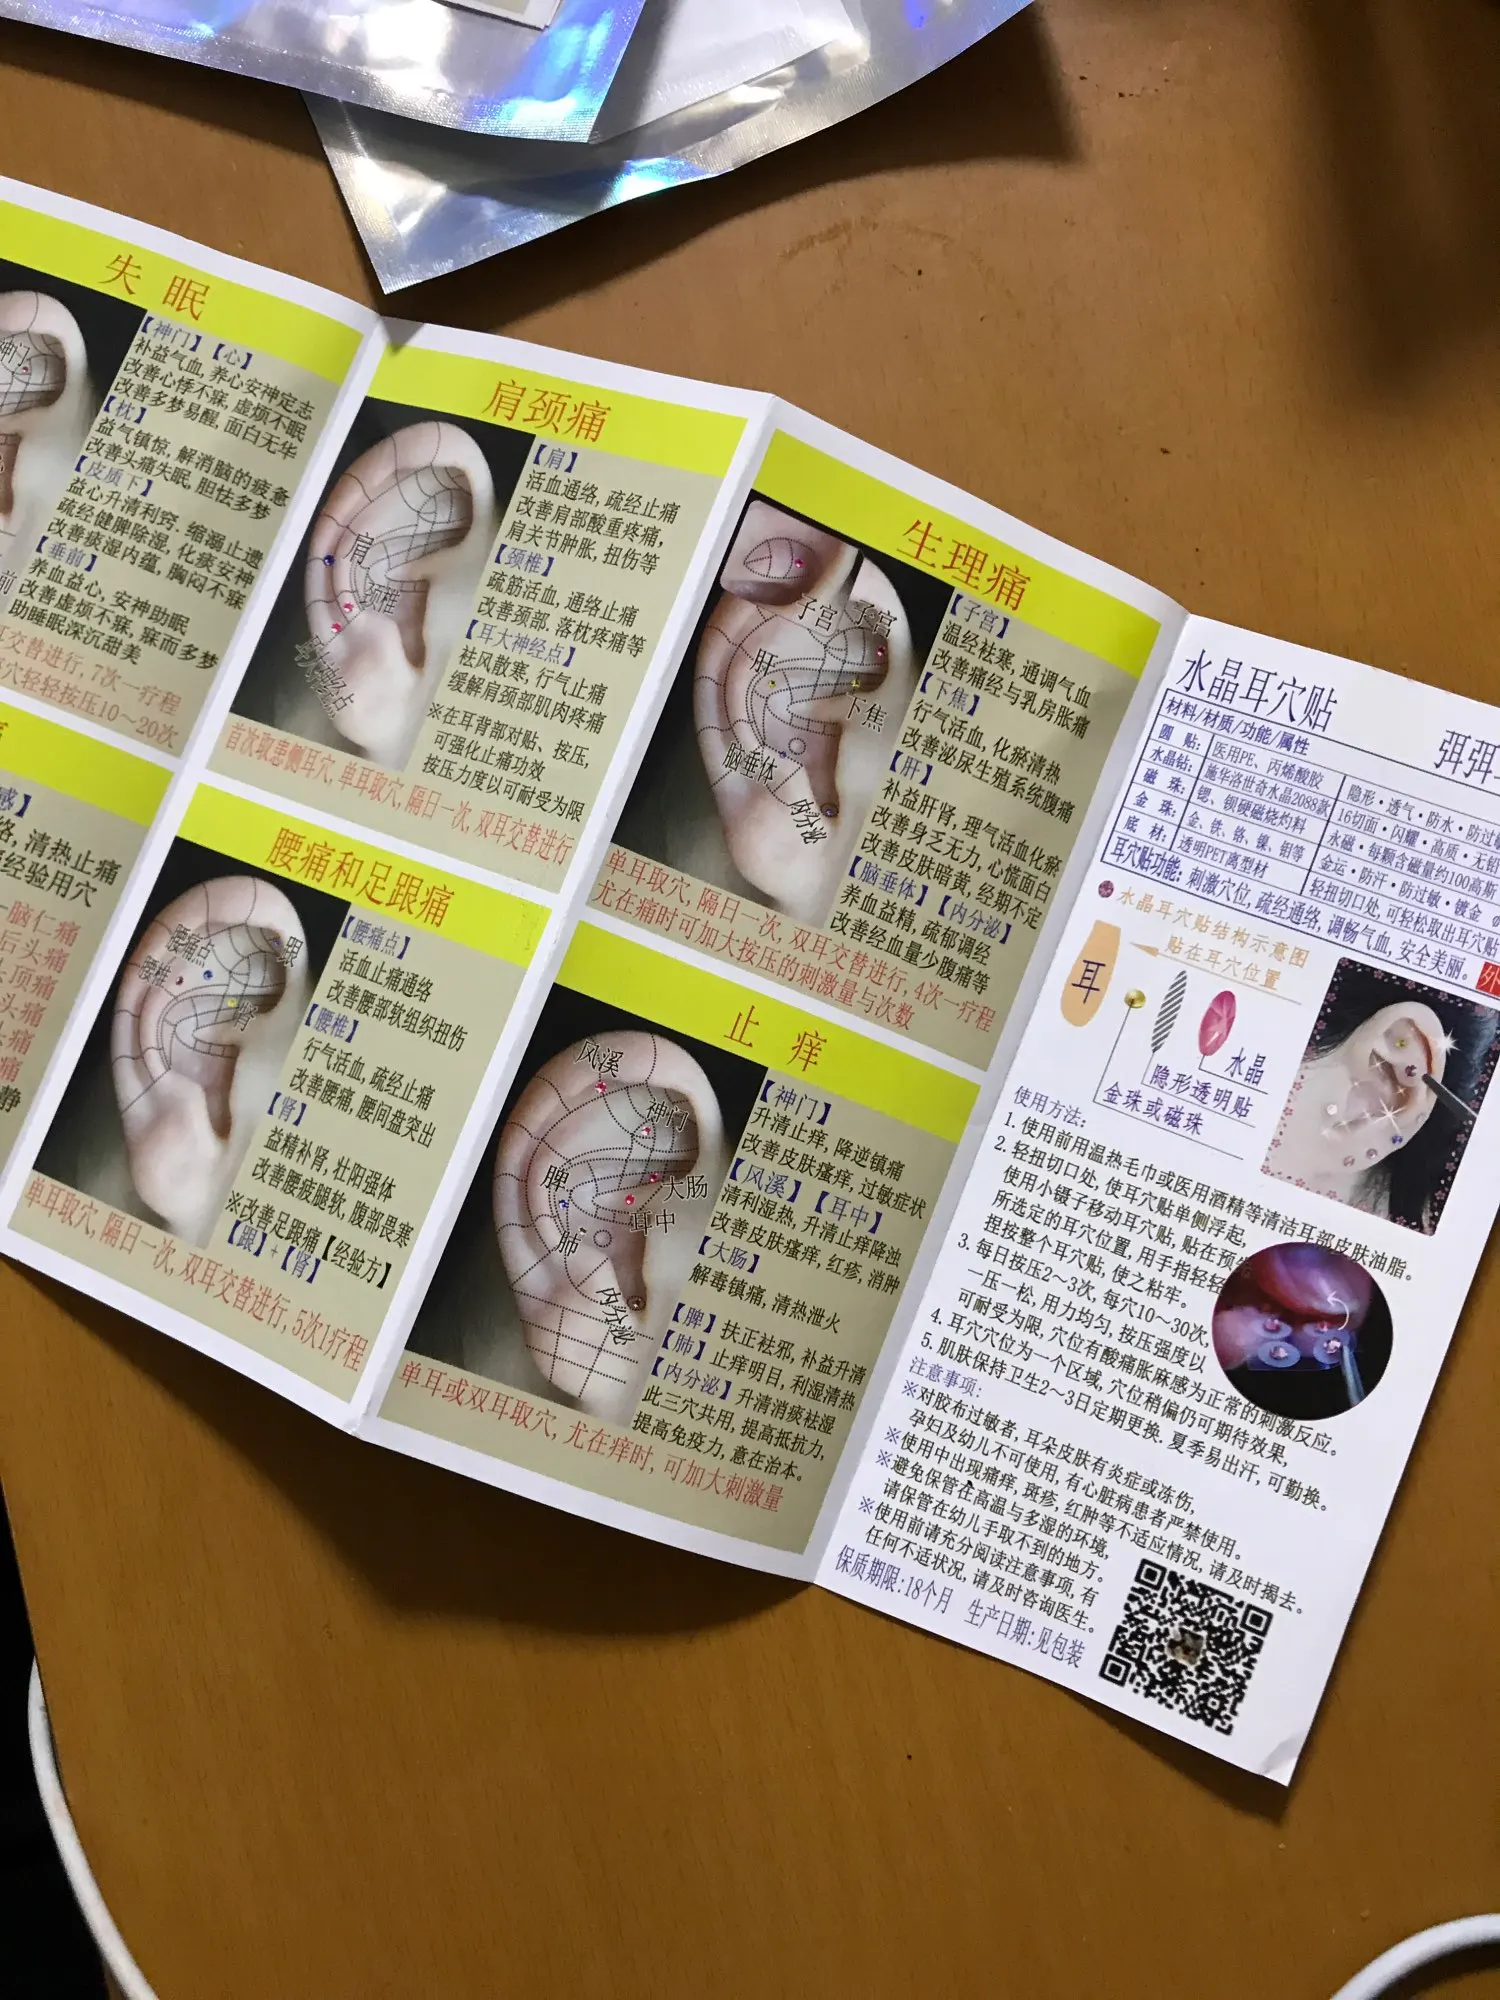 失眠
神门
【神门】【心】
补益气血, 养心安神定志
改善心悸不寐, 虚烦不眠
改善多梦易醒, 面白无华
【枕】
益气镇惊, 解消脑的疲惫
改善头痛失眠, 胆怯多梦
【皮质下】
益心升清利窍. 缩溺止遗
疏经健脾除湿, 化痰安神
改善痰湿内蕴, 胸闷不寐
【垂前】
养血益心, 安神助眠
改善虚烦不寐, 寐而多梦
助睡眠深沉甜美
前
交替进行, 7次一疗程
穴轻轻按压10～20次
感】
络, 清热止痛
经验用穴
脑仁痛
后头痛
顶痛
头痛
头痛
痛
静
肩颈痛
肩
颈椎
耳大神经点
【肩】
活血通络, 疏经止痛
改善肩部酸重疼痛,
肩关节肿胀, 扭伤等
【颈椎】
疏筋活血, 通络止痛
改善颈部, 落枕疼痛等
【耳大神经点】
祛风散寒, 行气止痛
缓解肩颈部肌肉疼痛
※在耳背部对贴、按压,
可强化止痛功效
按压力度以可耐受为限
首次取患侧耳穴, 单耳取穴, 隔日一次, 双耳交替进行
腰痛和足跟痛
腰痛点
腰椎
跟
肾
【腰痛点】
活血止痛通络
改善腰部软组织扭伤
【腰椎】
行气活血, 疏经止痛
改善腰痛, 腰间盘突出
【肾】
益精补肾, 壮阳强体
改善腰疲腿软, 腹部畏寒
※改善足跟痛【经验方】
【跟】+【肾】
单耳取穴, 隔日一次, 双耳交替进行, 5次1疗程
生理痛
子宫
子宫
肝
下焦
脑垂体
内分泌
【子宫】
温经祛寒, 通调气血
改善痛经与乳房胀痛
【下焦】
行气活血, 化瘀清热
改善泌尿生殖系统腹痛
【肝】
补益肝肾, 理气活血化瘀
改善身乏无力, 心慌面白
改善皮肤暗黄, 经期不定
【脑垂体】【内分泌】
养血益精, 疏郁调经
改善经血量少腹痛等
单耳取穴, 隔日一次, 双耳交替进行, 4次一疗程
尤在痛时可加大按压的刺激量与次数
止痒
风溪
神门
大肠
脾
耳中
肺
内分泌
【神门】
升清止痒, 降逆镇痛
改善皮肤瘙痒, 过敏症状
【风溪】【耳中】
清利湿热, 升清止痒降浊
改善皮肤瘙痒, 红疹, 消肿
【大肠】
解毒镇痛, 清热泄火
【脾】扶正祛邪, 补益升清
【肺】止痒明目, 利湿清热
【内分泌】升清消痰祛湿
此三穴共用, 提高抵抗力,
提高免疫力, 意在治本。
单耳或双耳取穴, 尤在痒时, 可加大刺激量
水晶耳穴贴
弭弭
材料/材质/功能/属性
圆贴: 医用PE、丙烯酸胶 隐形·透气·防水·防过敏
水晶钻: 施华洛世奇水晶2088款 16切面·闪耀·高质·无铅
磁珠: 锶、钡硬磁烧灼料 永磁·每颗含磁量约100高斯
金珠: 金、铁、铬、镍、铝等 金运·防汗·防过敏·镀金
底材: 透明PET离型材 轻扭切口处, 可轻松取出耳穴贴
耳穴贴功能: 刺激穴位, 疏经通络, 调畅气血, 安全美丽。
外
水晶耳穴贴结构示意图
贴在耳穴位置
耳
水晶
隐形透明贴
金珠或磁珠
使用方法:
1. 使用前用温热毛巾或医用酒精等清洁耳部皮肤油脂。
2. 轻扭切口处, 使耳穴贴单侧浮起,
使用小镊子移动耳穴贴, 贴在预先
所选定的耳穴位置, 用手指轻轻
捏按整个耳穴贴, 使之粘牢。
3. 每日按压2～3次, 每穴10～30次,
一压一松, 用力均匀, 按压强度以
可耐受为限, 穴位有酸痛胀麻感为正常的刺激反应。
4. 耳穴穴位为一个区域, 穴位稍偏仍可期待效果,
5. 肌肤保持卫生2～3日定期更换. 夏季易出汗, 可勤换。
注意事项:
※对胶布过敏者, 耳朵皮肤有炎症或冻伤,
孕妇及幼儿不可使用, 有心脏病患者严禁使用。
※使用中出现痛痒, 斑疹, 红肿等不适应情况, 请及时揭去。
※避免保管在高温与多湿的环境,
请保管在幼儿手取不到的地方。
※使用前请充分阅读注意事项, 有
任何不适状况, 请及时咨询医生。
保质期限: 18个月 生产日期: 见包装